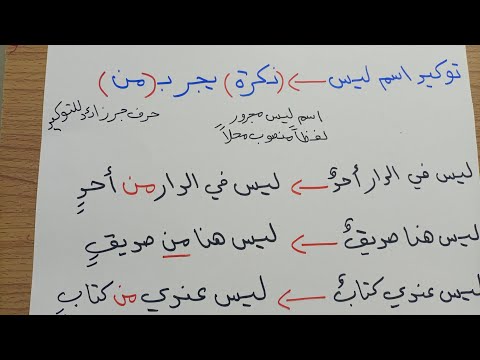 توكيد اسم ليس ← (نكرة) يجر بـ (من)
اسم ليس مجرور حرف جر زائد للتوكيد
لفظاً منصوب محلاً
ليس في الدار أحدٌ ← ليس في الدار من أحدٍ
ليس هنا صديقٌ ← ليس هنا من صديقٍ
ليس عندي كتابٌ ← ليس عندي من كتابٍ